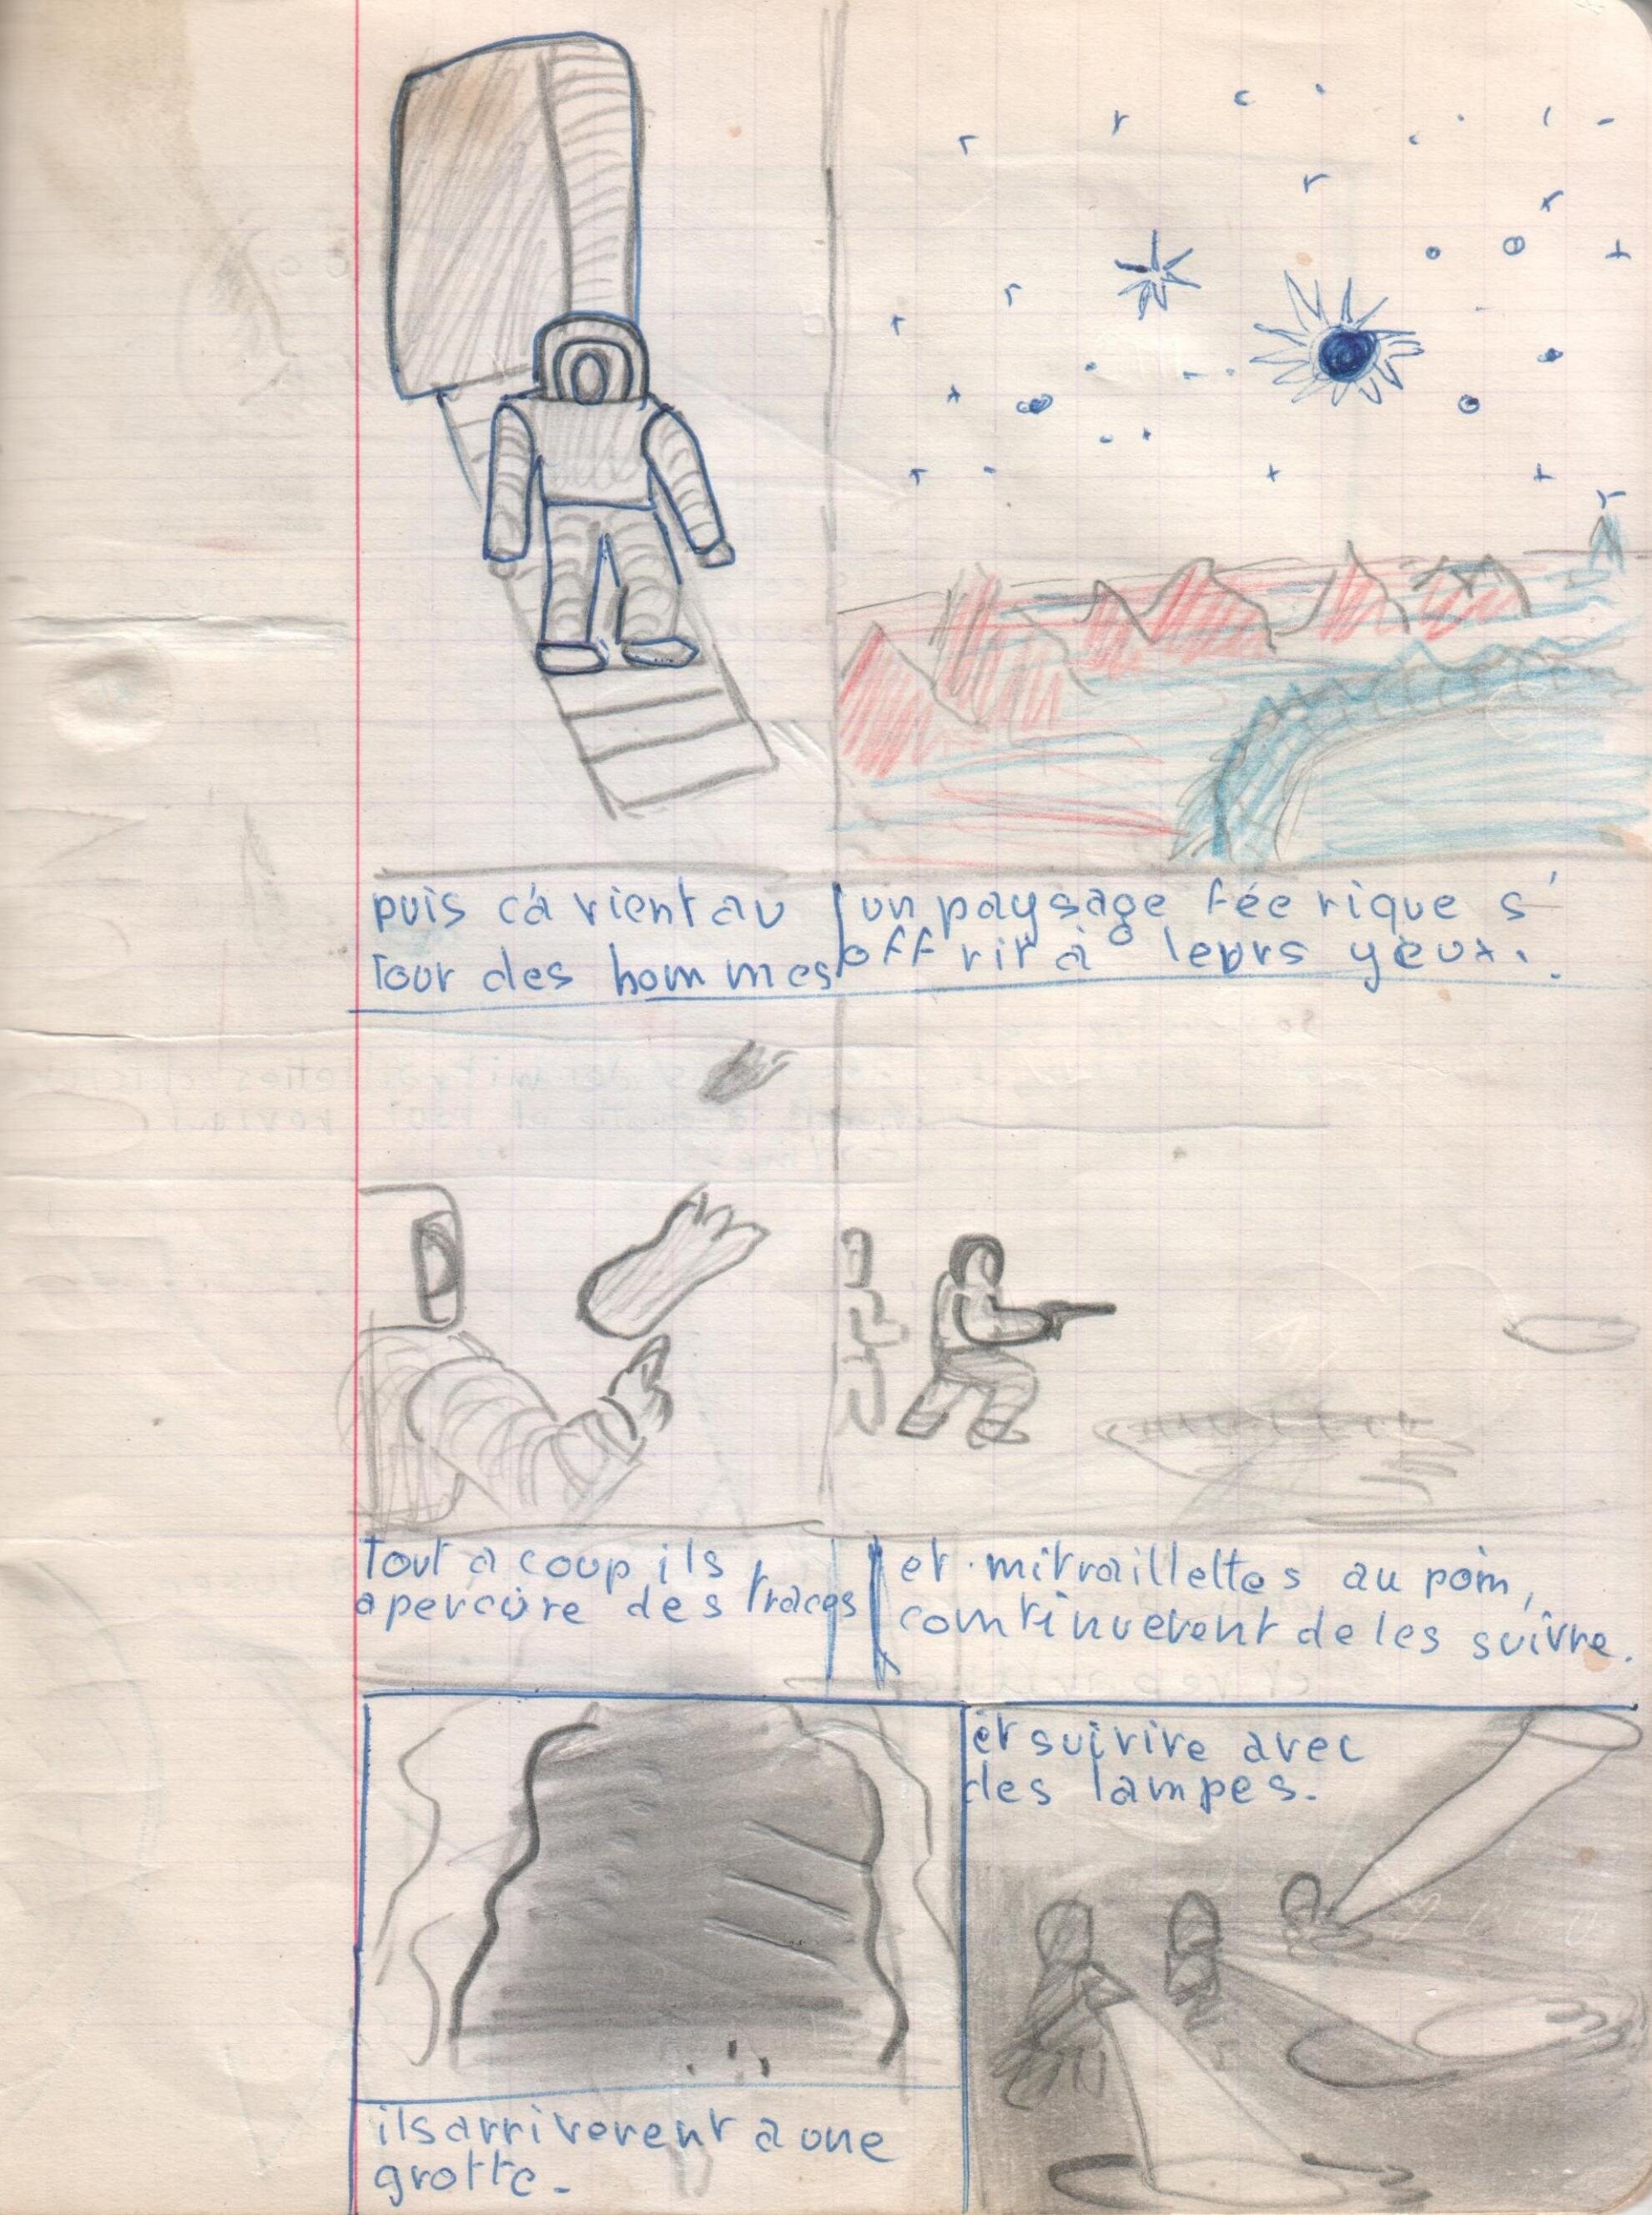 puis cà vient au
tour des hommes
un paysage féerique s'
offrit à leurs yeux.
tout a coup ils
apercùre des traces
et mitraillettes au poin,
continuerent de les suivre.
ils arriverent a une
grotte.
et suivire avec
des lampes.